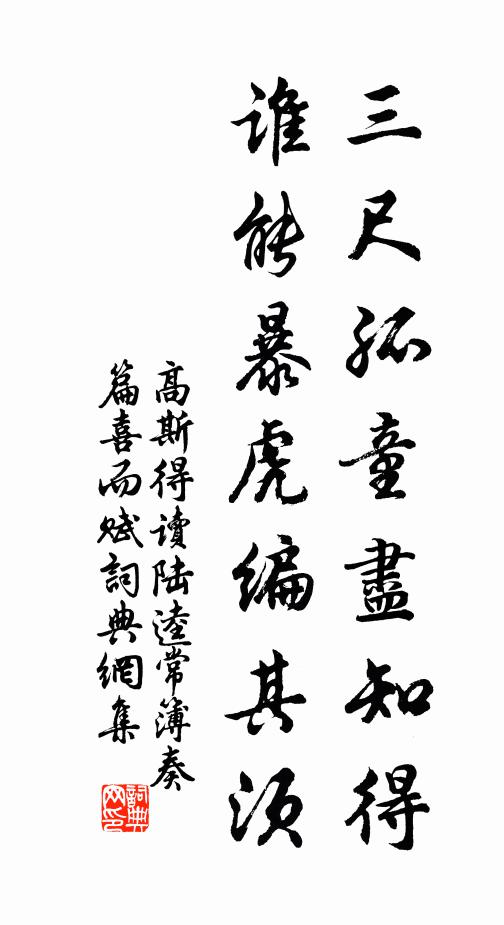 三尺孤童盡知得
誰能暴虎編其須
高斯得讀陸逵常簿奏
篇喜而赋詞典網集
詞典
网印